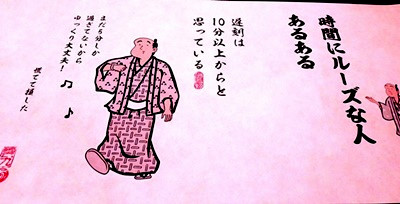 時間にルーズな人
あるある
遅刻は
10分以上からと
思っている
まだ5分しか
過ぎてないから
ゆっくり大丈夫!
慌てて損した